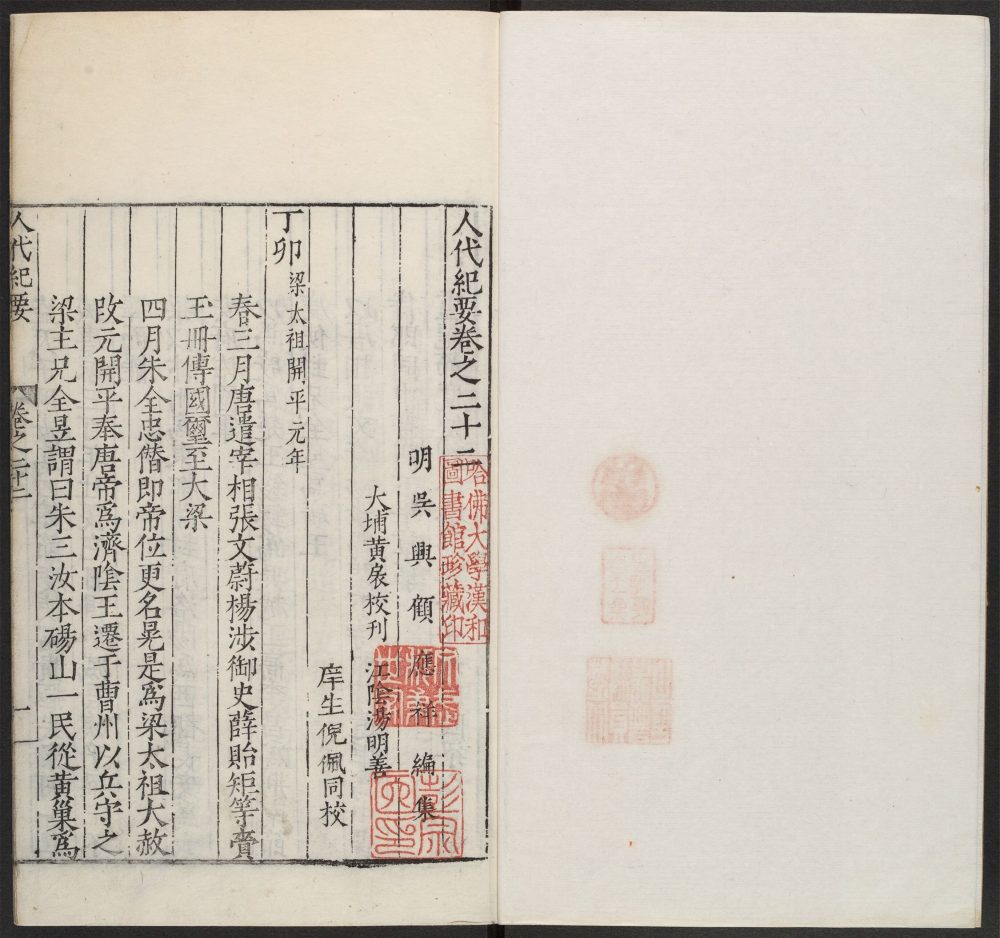 人代紀要卷之二十二
明吳興顧應祥編集
大埔黄扆校刋 江陰湯明善
庠生倪佩同校
丁卯 梁太祖開平元年
春三月唐遣宰相張文蔚楊涉御史薛貽矩等賫
王冊傳國璽至大梁
四月朱全忠僭即帝位更名晃是爲梁太祖大赦
改元開平奉唐帝爲濟陰王遷于曹州以兵守之
梁主兄全昱謂曰朱三汝本碭山一民從黄巢爲
人代紀要 卷之二十二 一
哈佛大學漢和
圖書館珍藏印